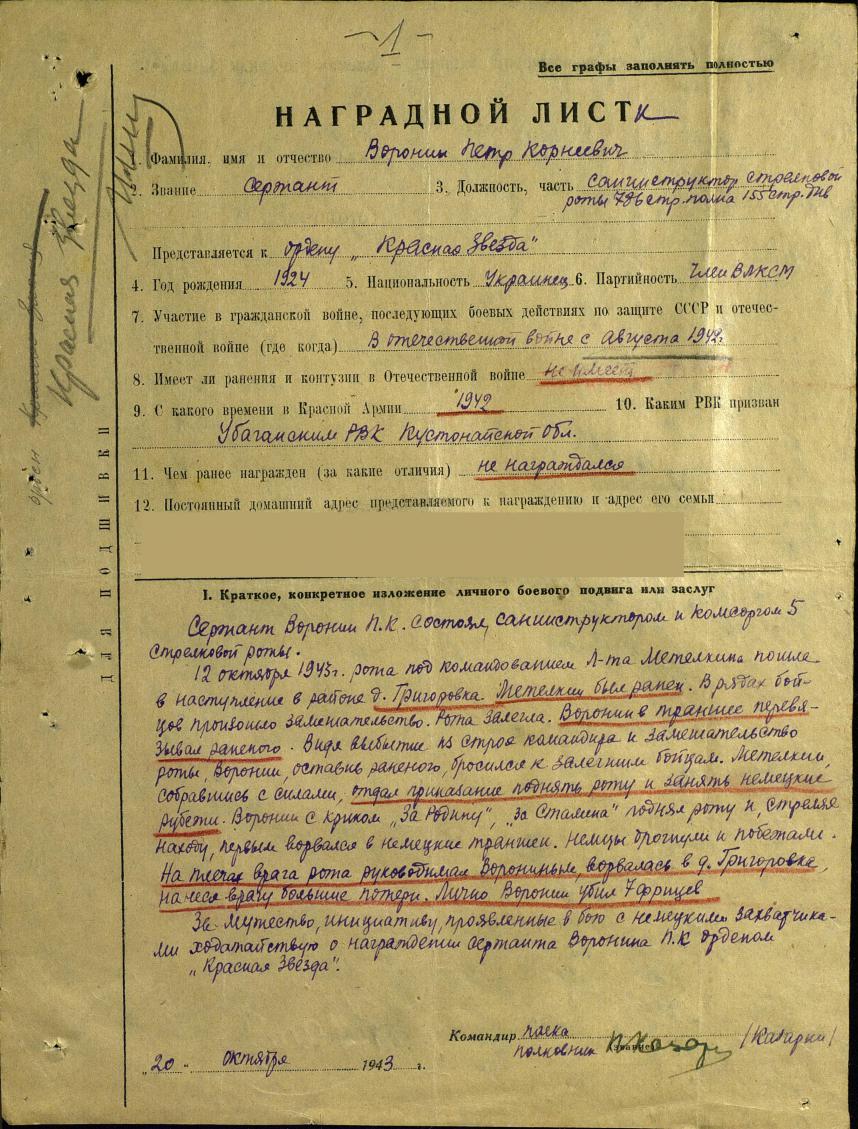 -1-
Все графы заполнять полностью
НАГРАДНОЙ ЛИСТ
Фамилия, имя и отчество Воронин Петр Корнеевич
2. Звание Сержант 3. Должность, часть санинструктор стрелковой
роты 786 стр. полка 155 стр. див
Представляется к ордену „Красная Звезда"
4. Год рождения 1924 5. Национальность Украинец 6. Партийность Член ВЛКСМ
7. Участие в гражданской войне, последующих боевых действиях по защите СССР и отечес-
твенной войне (где когда) В отечественной войне с Августа 1942г.
8. Имеет ли ранения и контузии в Отечественной войне не имеет
9. С какого времени в Красной Армии 1942 10. Каким РВК призван
Убаганским РВК Кустонайской обл.
11. Чем ранее награжден (за какие отличия) не награждался
12. Постоянный домашний адрес представляемого к награждению и адрес его семьи
I. Краткое, конкретное изложение личного боевого подвига или заслуг
Сержант Воронин П.К. состоял, санинструктором и комсоргом 5
стрелковой роты.
12 октября 1943г. рота под командованием Л-та Метелкина пошла
в наступление в районе д. Григоровка. Метелкин был ранен. В рядах бой-
цов произошло замешательство. Рота залегла. Воронин в траншее перевя-
зывал раненого. Видя выбытие из строя командира и замешательство
роты, Воронин, оставив раненого, бросился к залегшим бойцам. Метелкин,
собравшись с силами, отдал приказание поднять роту и занять немецкие
рубежи. Воронин с криком „За Родину", „за Сталина" поднял роту и стреляя
находу, первым ворвался в немецкие траншеи. Немцы дрогнули и побежали.
На плечах врага рота руководимая Ворониным, ворвалась в д. Григоровка,
нанеся врагу большие потери. Лично Воронин убил 7 фрицев
За мужество, инициативу, проявленные в бою с немецкими захватчика-
ми ходатайствую о награждении сержанта Воронина П.К орденом
„Красная Звезда".
Командир полка
полковник (звание) /Казарки/
„20" октября 1943 г.
ДЛЯ ПОДШИВКИ
орден
Красная Звезда